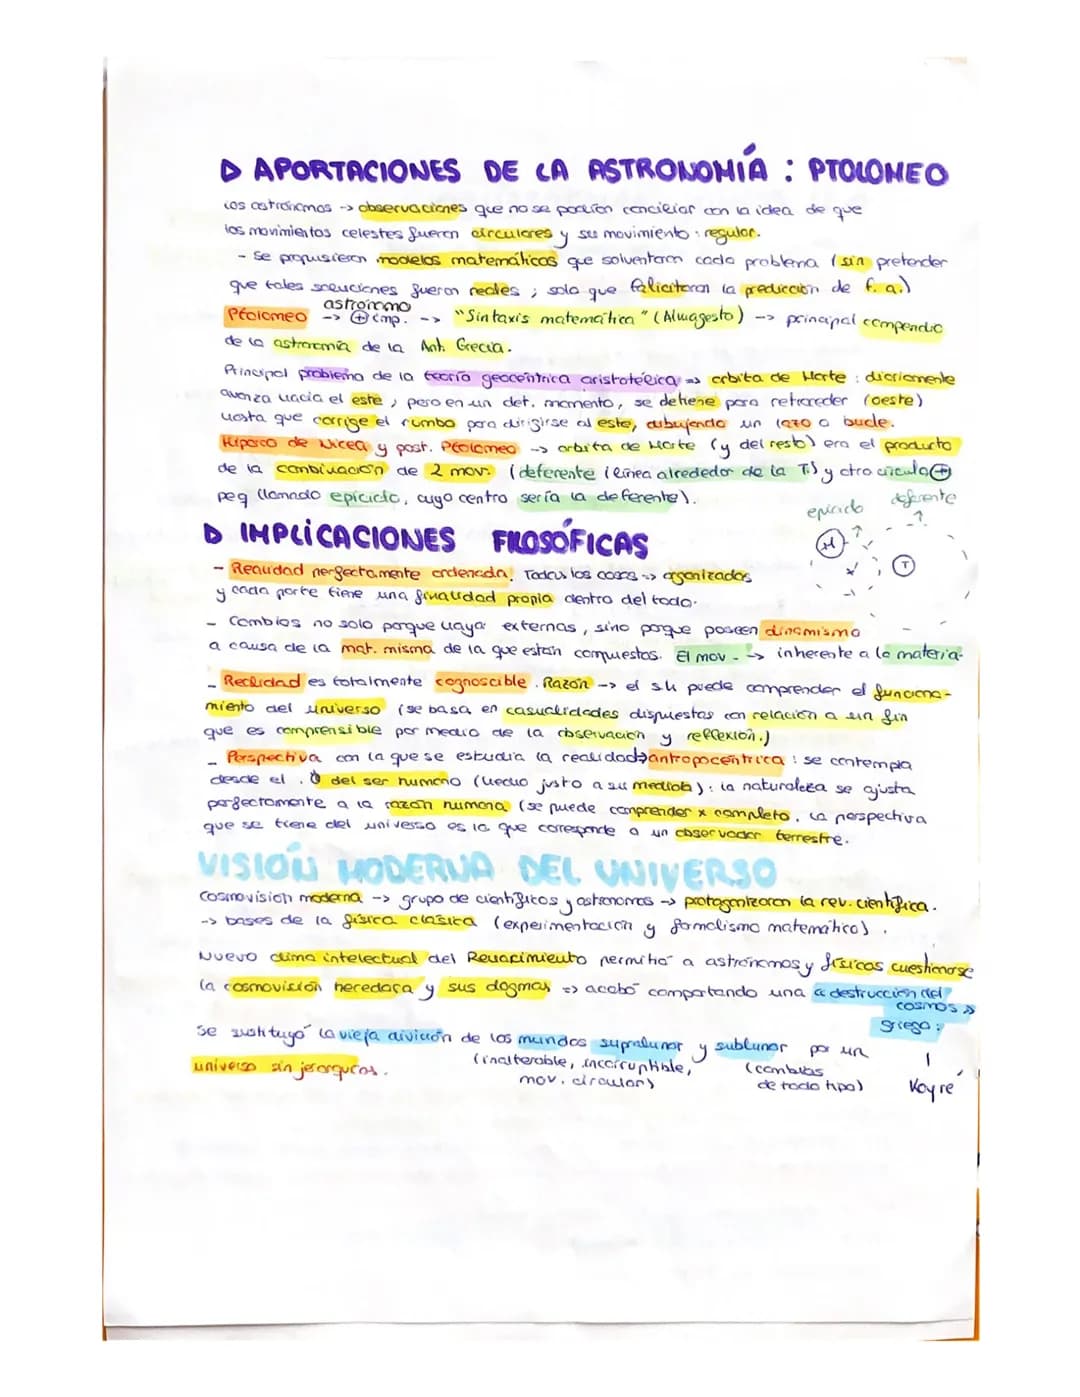 ▷ APORTACIONES DE LA ASTRONOMÍA : PTOLOMEO
Los astrónomos -> observaciones que no se podían conciliar con la idea de que
los movimientos celestes fueran circulares y su movimiento : regular.
- Se propusieron modelos matemáticos que solventaran cada problema (sin pretender
que tales soluciones fueran reales ; solo que felicitaran la predicción de f. a.)
astrónomo
Ptolomeo -> ⊕ imp. --> "Sintaxis matemática" (Almagesto) --> principal compendio
de la astronomía de la Ant. Grecia.
Principal problema de la teoría geocéntrica aristotélica => orbita de Marte : diariamente
avanza hacia el este, pero en un det. momento, se detiene para retroceder (oeste)
hasta que corrige el rumbo para dirigirse al este, dibujando un lazo o bucle.
Hiparco de Nicea y post. Ptolomeo --> orbita de Marte (y del resto) era el producto
de la combinación de 2 mov. (deferente (línea alrededor de la T.) y otro círculo ⊕
peq llamado epiciclo, cuyo centro sería la deferente).
epiciclo deferente
M T
▷ IMPLICACIONES FILOSÓFICAS
- Realidad perfectamente ordenada. Todas las cosas -> organizadas
y cada parte tiene una finalidad propia dentro del todo.
- Cambios no solo porque haya externas, sino porque poseen dinamismo
a causa de la mat. misma de la que están compuestas. El mov. -> inherente a la materia.
- Realidad es totalmente cognoscible. Razón -> el sh puede comprender el funciona-
miento del universo (se basa en casualidades dispuestas con relación a un fin
que es comprensible por medio de la observación y reflexión.)
- Perspectiva con la que se estudia la realidad -> antropocéntrica : se contempla
desde el . del ser humano (hecho justo a su medida) : la naturaleza se ajusta
perfectamente a la razón humana (se puede comprender x completo. La perspectiva
que se tiene del universo es la que corresponde a un observador terrestre.
VISIÓN MODERNA DEL UNIVERSO
Cosmovisión moderna -> grupo de científicos y astrónomos -> protagonizaron la rev. científica.
-> bases de la física clásica (experimentación y formalismo matemático).
Nuevo clima intelectual del Renacimiento permitió a astrónomos y físicos cuestionarse
la cosmovisión heredada y sus dogmas => acabó comportando una « destrucción del
cosmos »
griego :
Se sustituyó la vieja división de los mundos supralunar y sublunar por un
(inalterable, incorruptible, (cambios
mov. circular) de todo tipo) Koyré
universo sin jerarquías.